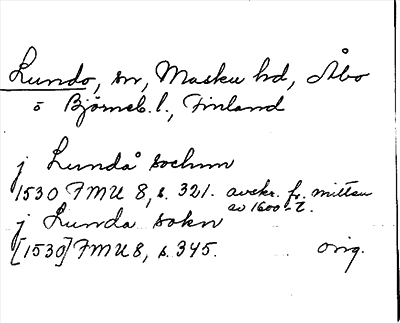 Lundo, sn, Masku hd, Åbo
o Björneb. l., Finland
j Lundå sochnn
1530 FMU 8, s. 321. avskr. fr. mitten
av 1600-t.
j Lunda sokn
[1530] FMU 8, s. 345. orig.